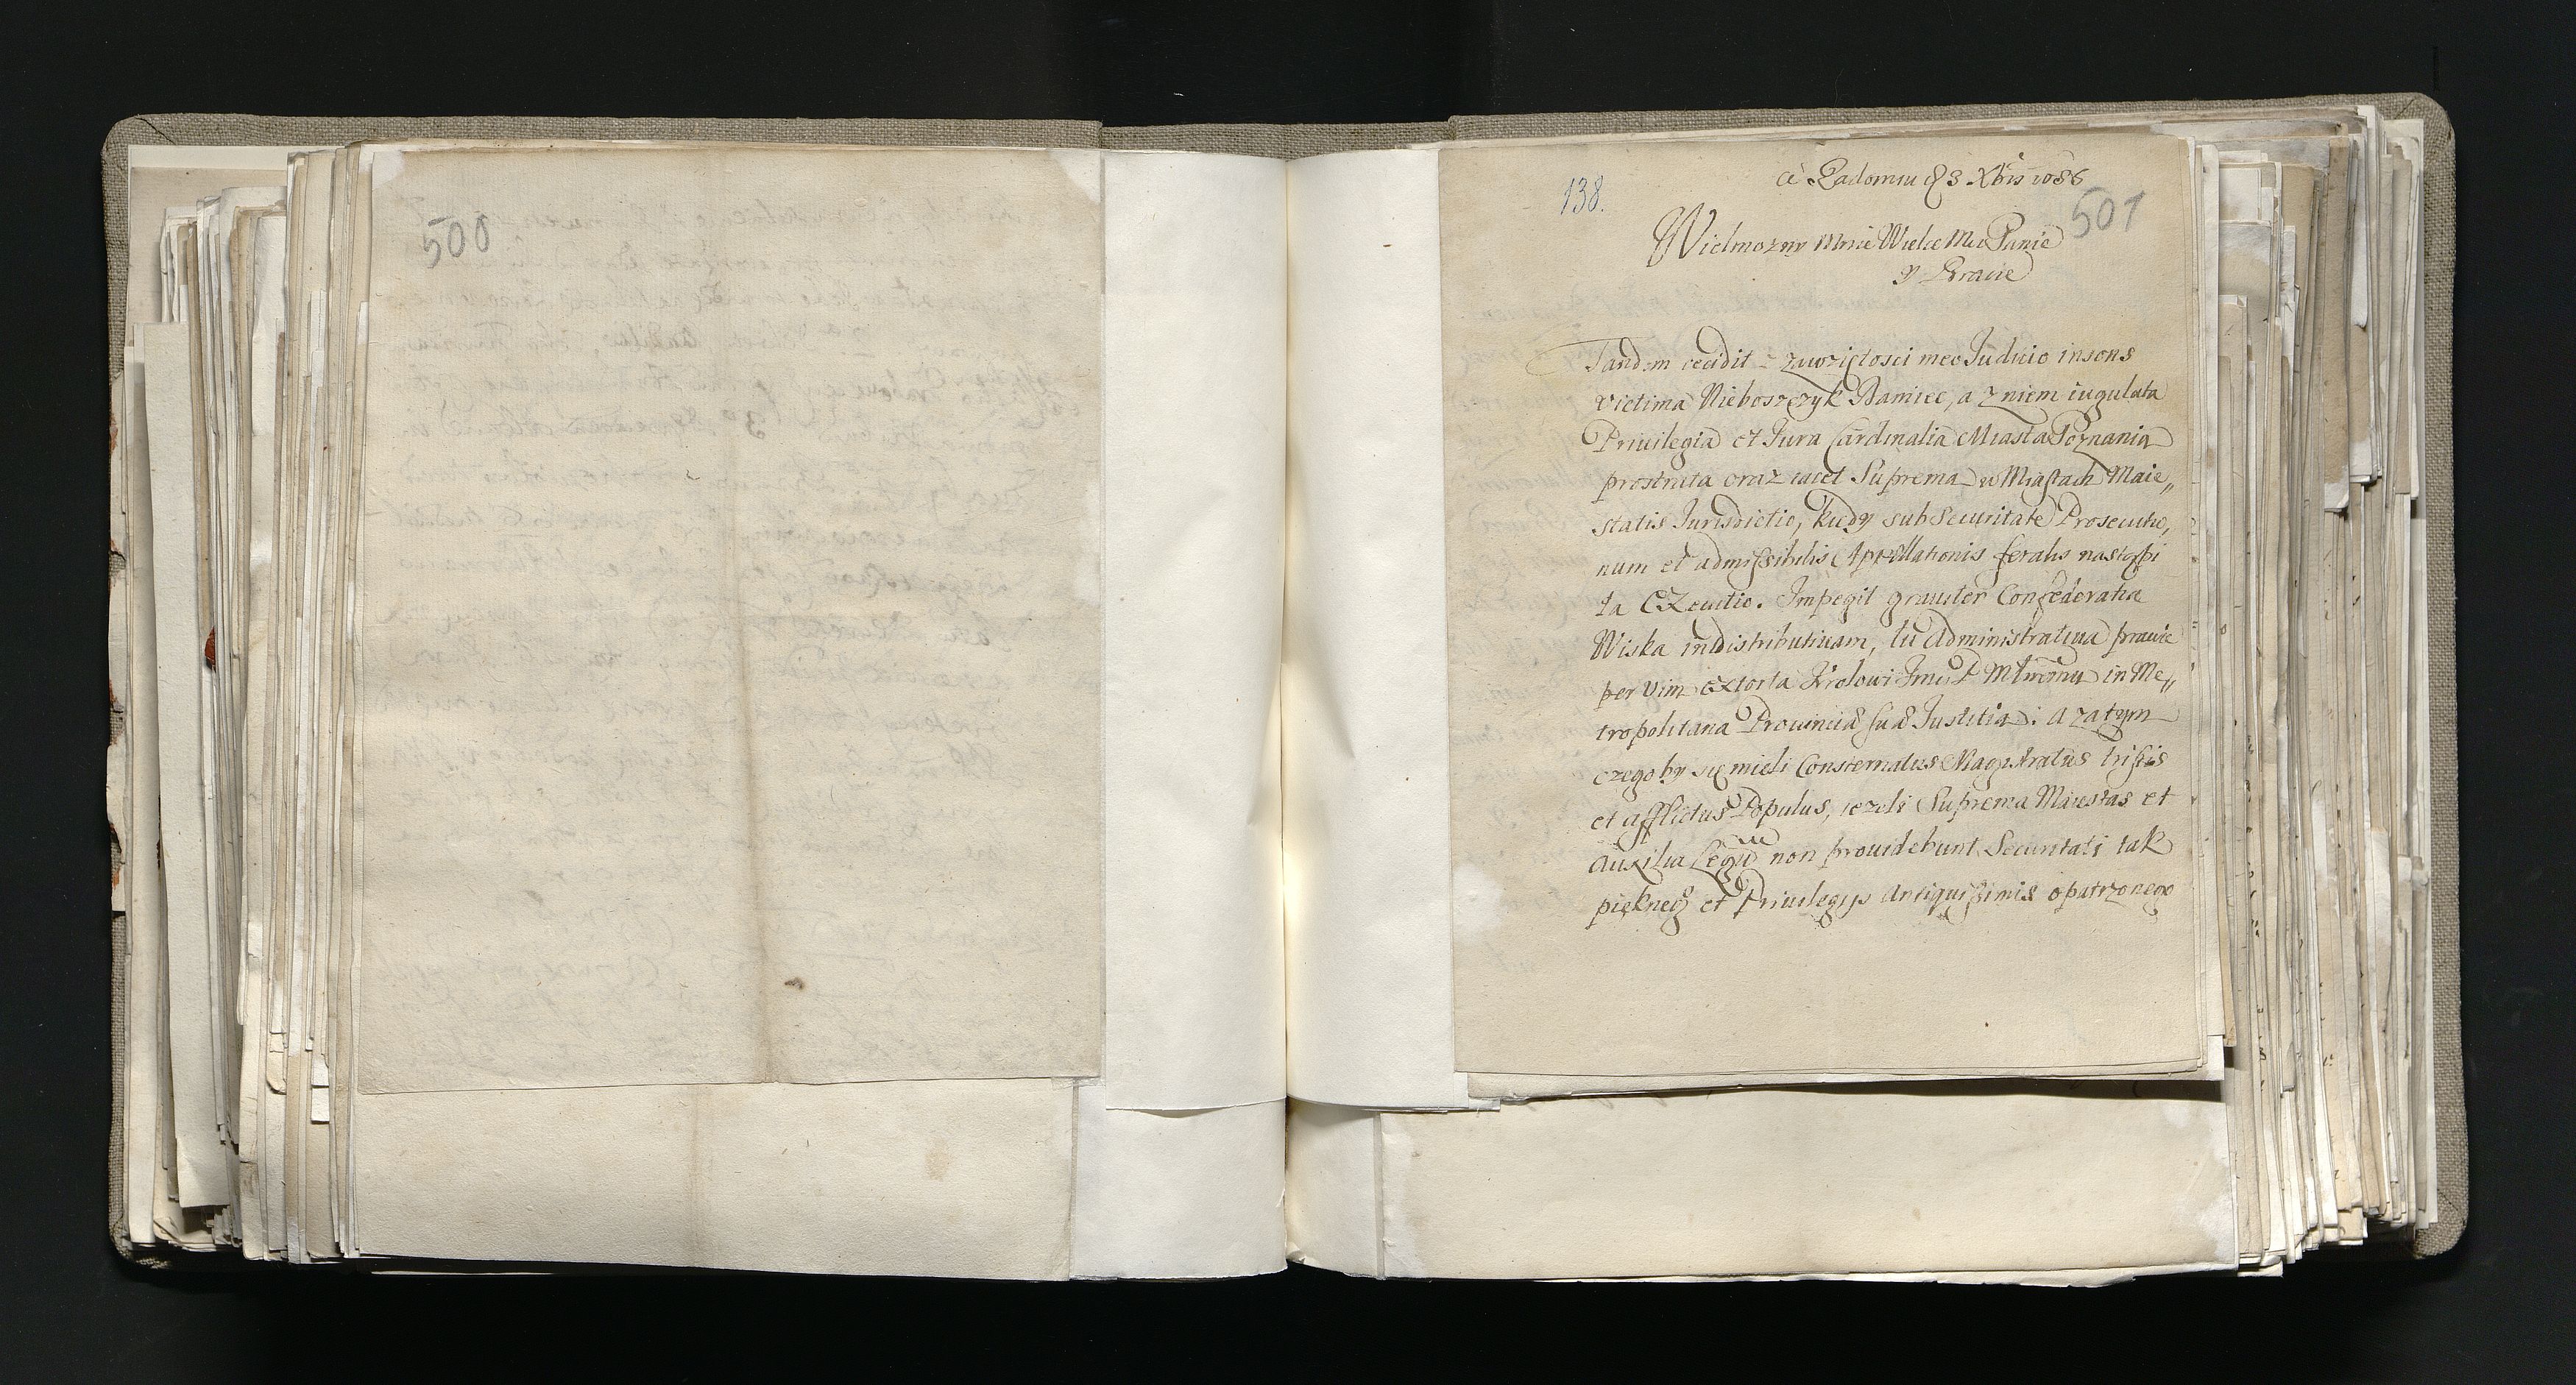 500
138.
a Radomiu d 3 Xbris 1686
501
Wielmozny Mnie Wielce Mci Panie
y Bracie
Tandem cecidit zawziętosci meo Judicio insons
victima Nieboszczyk Bamiec, a z niem iugulata
Priuilegia et Jura Cardinalia Miasta Poznania
prostrata oraz iacet Suprema w Miastach Maie„
statis Jurisdictio, kiedy sub Securitate Prosecutio,
num et admissibilis Appellationis feralis nastąpi
ła EXecutio. Impegit grauiter Confederatia
Wiska in distributiuam, tu administratiua prawie
per Vim extorta Krolowi Jmci P Młwemu in Me„
tropolitana Prouincia sua Justitia: a zatym
czego by się mieli Consternatus Magistratus tristis
et afflictus Populus, iezeli Suprema Maiestas et
Auxilia Legu non prouidebunt Securitati tak
pięknego et Priuilegijs Antiquissimis opatrzonego